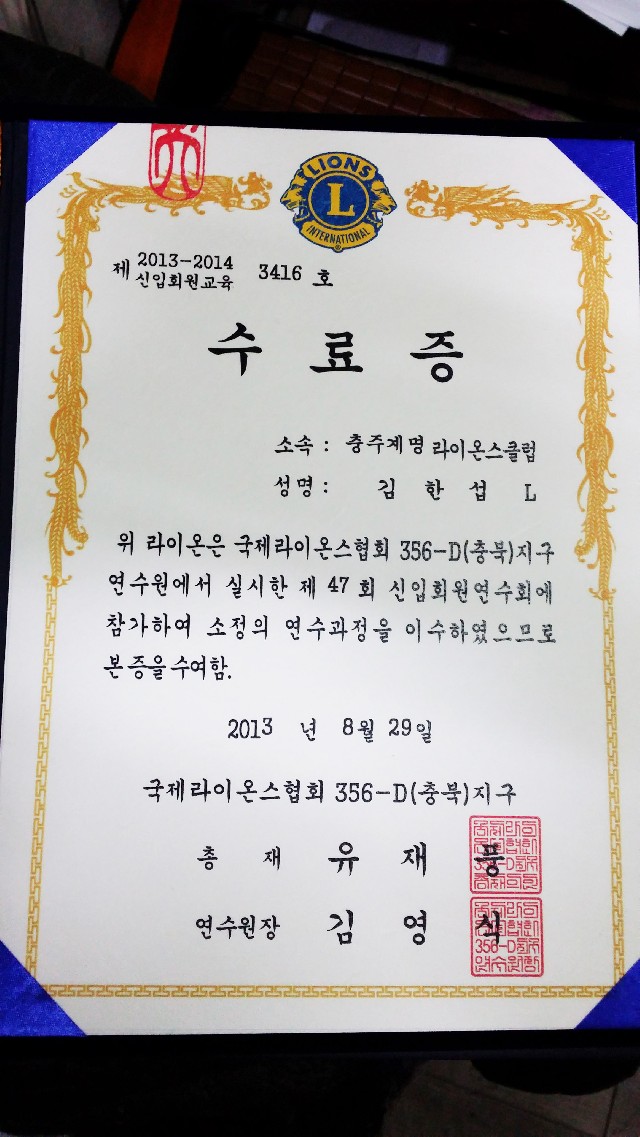 LIONS
L
INTERNATIONAL
제 2013-2014 신입회원교육 3416 호
수 료 증
소속 : 충주계명 라이온스클럽
성명 : 김 한 섭 L
위 라이온은 국제라이온스협회 356-D(충북)지구
연수원에서 실시한 제 47 회 신입회원연수회에
참가하여 소정의 연수과정을 이수하였으므로
본 증을 수여함.
2013 년 8월 29일
국제라이온스협회 356-D(충북)지구
총 재 유 재 풍
연수원장 김 영 식